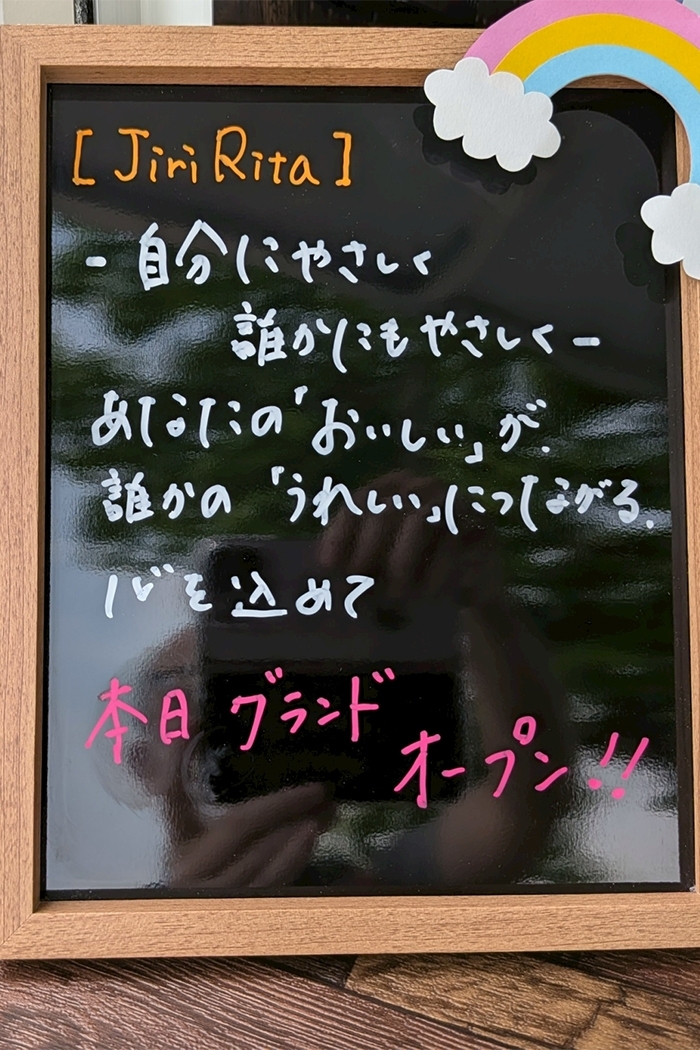 [JiriRita]
- 自分にやさしく
誰かにもやさしく -
あなたの「おいしい」が、
誰かの「うれしい」につながる。
心を込めて
本日 グランド
オープン!!